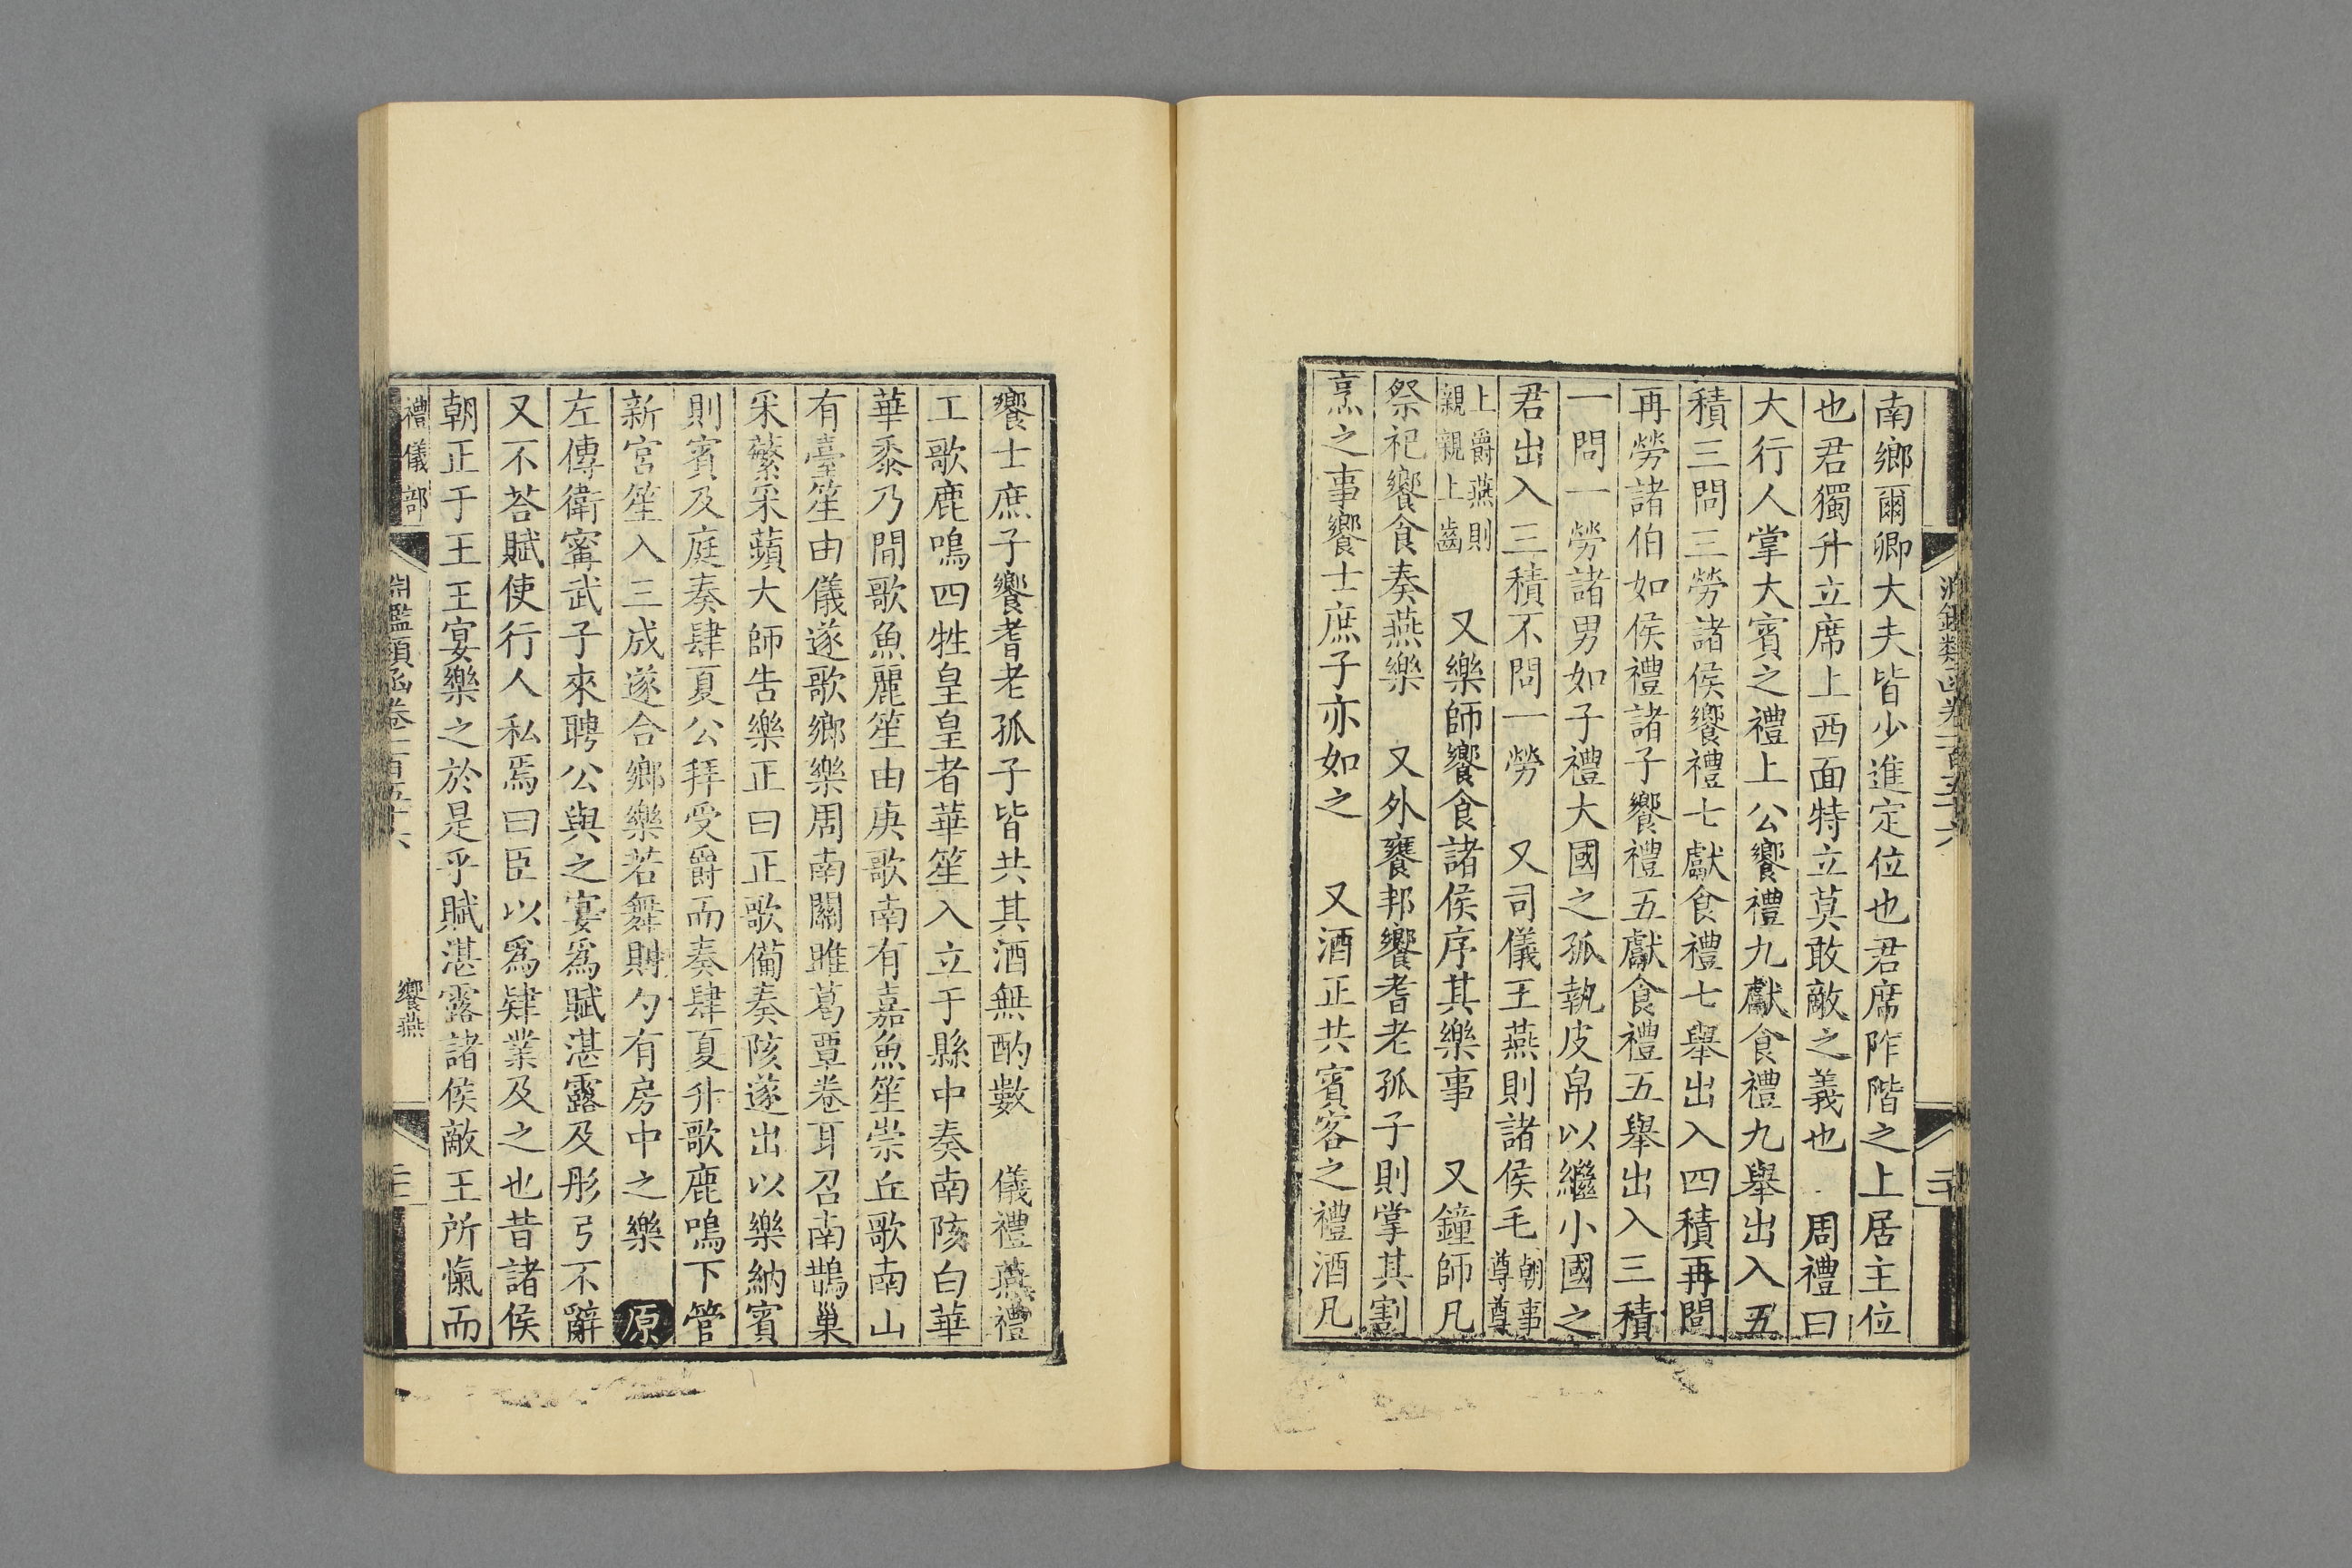 南鄉爾卿大夫皆少進定位也君席阼階之上居主位
也君獨升立席上西面特立莫敢敵之義也　周禮曰
大行人掌大賓之禮上公饗禮九獻食禮九舉出入五
積三問三勞諸侯饗禮七獻食禮七舉出入四積再問
再勞諸伯如侯禮諸子饗禮五獻食禮五舉出入三積
一問一勞諸男如子禮大國之孤執皮帛以繼小國之
君出入三積不問一勞　又司儀王燕則諸侯毛朝事尊尊
上爵燕則親親上齒　又樂師饗食諸侯序其樂事　又鐘師凡
祭祀饗食奏燕樂　又外饔邦饗耆老孤子則掌其割
烹之事饗士庶子亦如之　又酒正共賓客之禮酒凡
饗士庶子饗耆老孤子皆共其酒無酌數　儀禮燕禮
工歌鹿鳴四牡皇皇者華笙入立于縣中奏南陔白華
華黍乃間歌魚麗笙由庚歌南有嘉魚笙崇丘歌南山
有臺笙由儀遂歌鄉樂周南關雎葛覃卷耳召南鵲巢
采蘩采蘋大師告樂正曰正歌備奏陔遂出以樂納賓
則賓及庭奏肆夏公拜受爵而奏肆夏升歌鹿鳴下管
新宮笙入三成遂合鄉樂若舞則勺有房中之樂　原
左傳衛甯武子來聘公與之宴爲賦湛露及彤弓不辭
又不荅賦使行人私焉曰臣以爲肄業及之也昔諸侯
朝正于王王宴樂之於是乎賦湛露諸侯敵王所愾而
禮儀部
淵鑑類函卷一百五十六
饗燕
二十